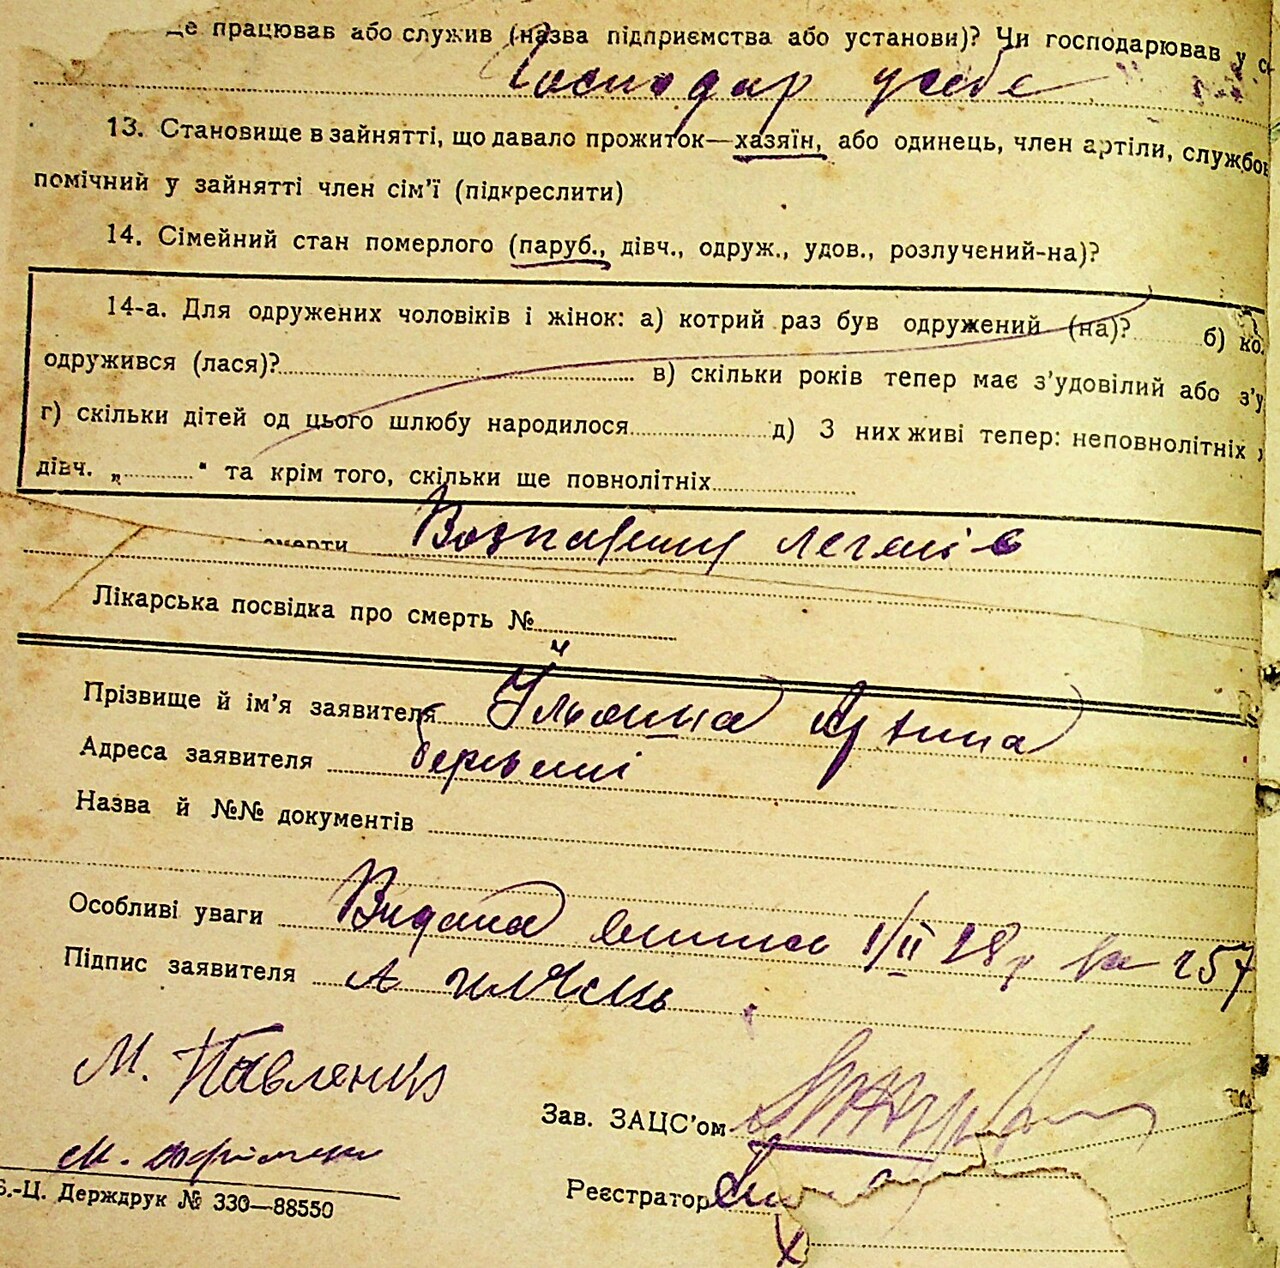 працював або служив (назва підприємства або установи)? Чи господарював у
Господар у себе
13. Становище в зайнятті, що давало прожиток—хазяїн, або одинець, член артіли, службов
помічний у зайнятті член сім'ї (підкреслити)
14. Сімейний стан померлого (паруб., дівч., одруж., удов., розлучений-на)?
14-а. Для одружених чоловіків і жінок: а) котрий раз був одружений (на)? б) ко
одружився (лася)? в) скільки років тепер має з'удовілий або з'у
г) скільки дітей од цього шлюбу народилося д) З них живі тепер: неповнолітніх
дівч. „ “ та крім того, скільки ще повнолітніх
смерти легенів
Лікарська посвідка про смерть №
Прізвище й ім'я заявителя
Адреса заявителя
Назва й №№ документів
Особливі уваги Видана 1/II 28р 257
Підпис заявителя А
М. Павленко
Зав. ЗАЦС'ом
М.
Реєстратор
Б.-Ц. Держдрук № 330—88550